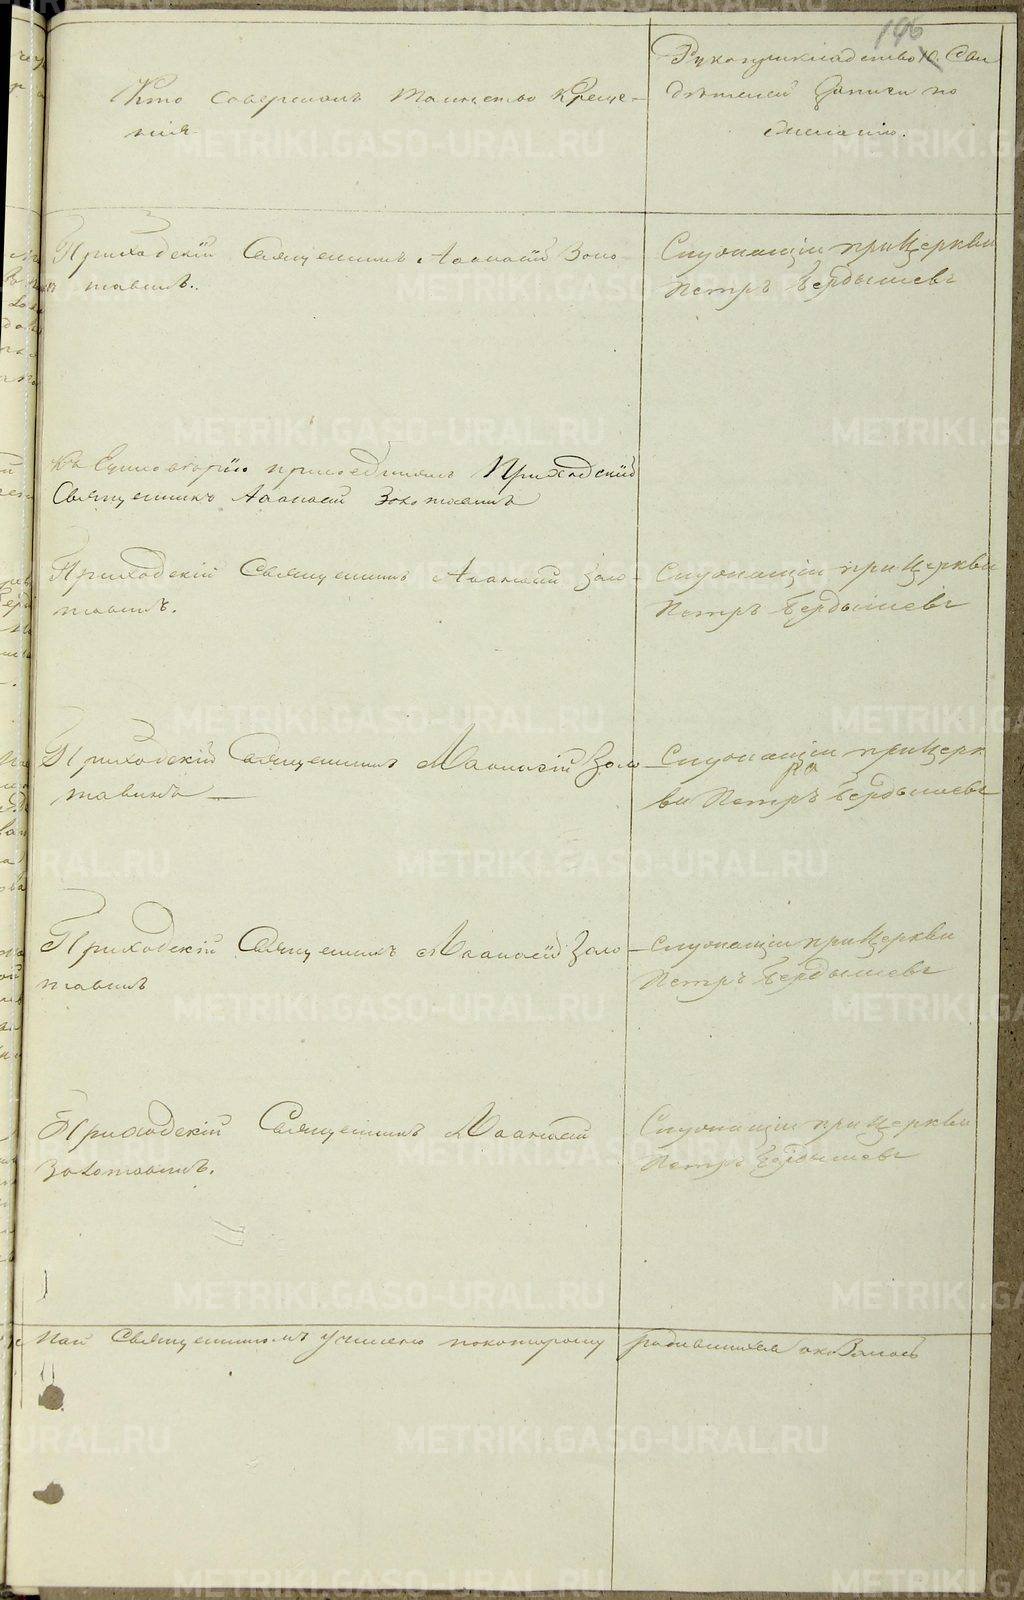 196
Кто совершалъ таинство креще-
нія
Рукоприкладство Сви
дѣтелей записи по
желанію.
Приходскій Священникъ Аѳанасій Золо
тавинъ.
Служащій при Церкви
Петръ Бердышевъ
Къ Единовѣрію присоединялъ Приходскій
Священникъ Аѳанасій Золотавинъ
Приходскій Священникъ Аѳанасій Золо-
тавинъ.
Служащій при Церкви
Петръ Бердышевъ
Приходскій Священникъ Аѳанасій Золо
тавинъ
Служащій при Церк
ви Петръ Бердышевъ
Приходскій Священникъ Аѳанасій Золо-
тавинъ
Служащій при Церкви
Петръ Бердышевъ
Приходскій Священникъ Аѳанасій
Золотавинъ.
Служащій при Церкви
Петръ Бердышевъ
Священникомъ учинено по которому родившихся оказалось
METRIKI.GASO-URAL.RU